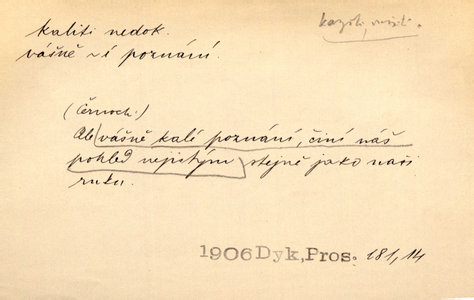 kaliti nedok.
kazíti, ničiti.
vášně ~í poznání.
(Černoch:)
Ale vášně kalí poznání, činí náš
pohled nejistým stejně jako naši
ruku.
1906 Dyk, Pros. 181, 14